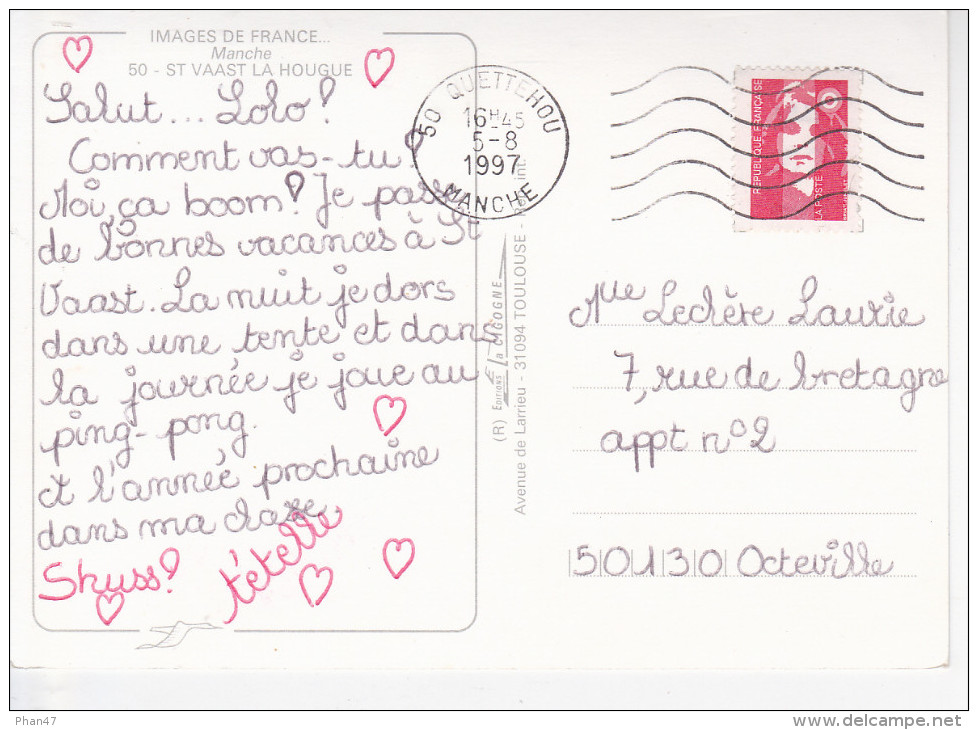 IMAGES DE FRANCE...
Manche
50 - ST VAAST LA HOUGUE
Salut... Lolo!
Comment vas-tu?
Moi, ça boom! Je passe
de bonnes vacances à St
Vaast. La nuit je dors
dans une tente et dans
la journée je joue au
ping-pong.
et l'année prochaine
dans ma classe.
Shuss!
tételle
50 QUETTEHOU
16H45
5-8
1997
MANCHE
(R) EDITIONS La CIGOGNE
Avenue de Larrieu - 31094 TOULOUSE - int.
REPUBLIQUE FRANÇAISE
LA POSTE
Mlle Lechère Laurie
7, rue de bretagne
appt n°2
50130 Octeville
Phan47
www.delcampe.net